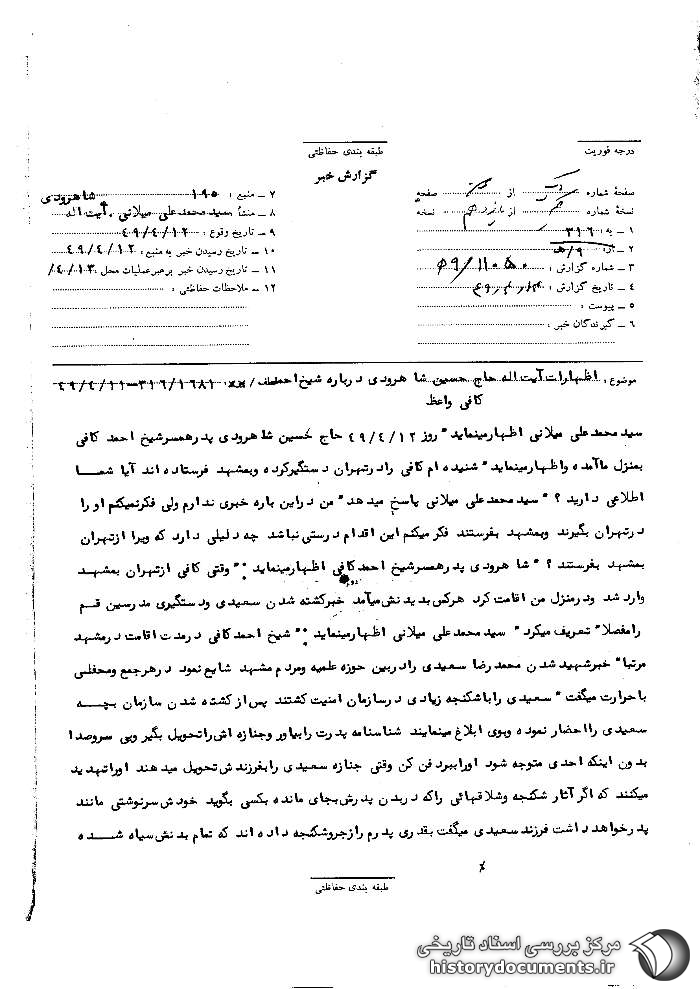 درجه فوریت
طبقه بندی حفاظتی
گزارش خبر
صفحهٔ شماره از صفحه
نسخهٔ شماره از یازدهم نسخه
۱ ـ به ۳۱۶
۲ ـ از ۹/هـ
۳ ـ شماره گزارش :
۴ ـ تاریخ گزارش :
۵ ـ پیوست :
۶ ـ گیرندگان خبر :
۷ ـ منبع : ۱۹۵ شاهرودی
۸ ـ منشأ سید محمد علی میلانی . آیت اله
۹ ـ تاریخ وقوع : ۴۹/۴/۱۲
۱۰ ـ تاریخ رسیدن خبر به منبع : ۴۹/۴/۱۲
۱۱ ـ تاریخ رسیدن خبر برهبرعملیات محل ۴/۱۳/
۱۲ ـ ملاحظات حفاظتی :
موضوع : اظهارات آیت اله حاج حسین شاهرودی درباره شیخ احمد ۳۱۶/۱۶۸۱ـ۴۹/۴/۱۱
کافی واعظ
سید محمد علی میلانی اظهارمینماید " روز ۴۹/۴/۱۲ حاج حسین شاهرودی پدرهمسرشیخ احمد کافی
بمنزل ماآمده واظهارمینماید " شنیده ام کافی رادرتهران دستگیرکرده وبمشهد فرستاده اند آیا شما
اطلاعی دارید ؟ " سید محمد علی میلانی پاسخ میدهد " من دراین باره خبری ندارم ولی فکرنمیکنم او را
درتهران بگیرند وبمشهد بفرستند فکر میکنم این اقدام درستی نباشد چه دلیلی دارد که ویرا ازتهران
بمشهد بفرستند ؟ " شاهرودی پدرهمسرشیخ احمد کافی اظهارمینماید " وقتی کافی ازتهران بمشهد
وارد شد ودرمنزل من اقامت کرد هرکس بدیدنش میآمد خبرکشته شدن سعیدی ودستگیری مدرسین قم
رامفصلا" تعریف میکرد " سید محمد علی میلانی اظهارمینماید " شیخ احمد کافی درمدت اقامت درمشهد
مرتبا" خبرشهید شدن محمد رضا سعیدی رادربین حوزه علمیه ومردم مشهد شایع نمود درهرجمع ومحفلی
باحرارت میگفت " سعیدی راباشکنجه زیادی درسازمان امنیت کشتند پس ازکشته شدن سازمان بچه
سعیدی رااحضار نموده وبوی ابلاغ مینمایند شناسنامه پدرت رابیاور وجنازه اش راتحویل بگیر وبی سروصدا
بدون اینکه احدی متوجه شود اوراببرد فن کن وقتی جنازه سعیدی رابفرزندش تحویل میدهند اوراتهدید
میکنند که اگر آثار شکنجه وشلاقهائی راکه دربدن پدرش بجای مانده بکسی بگوید خودش سرنوشتی مانند
پدرخواهد داشت فرزند سعیدی میگفت بقدری پدرم رازجروشکنجه داده اند که تمام بدنش سیاه شده
طبقه بندی حفاظتی
مرکز بررسی اسناد تاریخی
historydocuments.ir